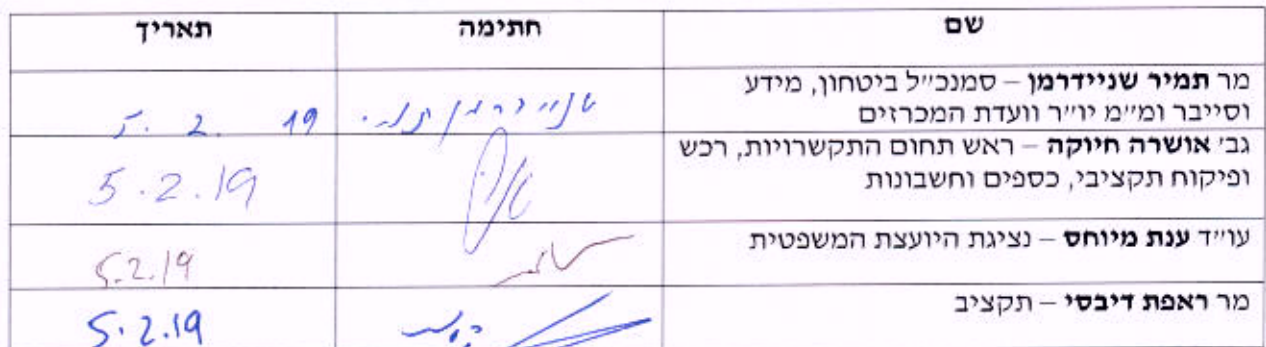 שם חתימה תאריך
מר תמיר שניידרמן – סמנכ״ל ביטחון, מידע
וסייבר ומ״מ יו״ר וועדת המכרזים שניידרמן תמיר 5. 2. 19
גב׳ אושרה חיוקה – ראש תחום התקשרויות, רכש
ופיקוח תקציבי, כספים וחשבונות 5.2.19
עו״ד ענת מיוחס – נציגת היועצת המשפטית 5.2.19
מר ראפת דיבסי – תקציב 5.2.19